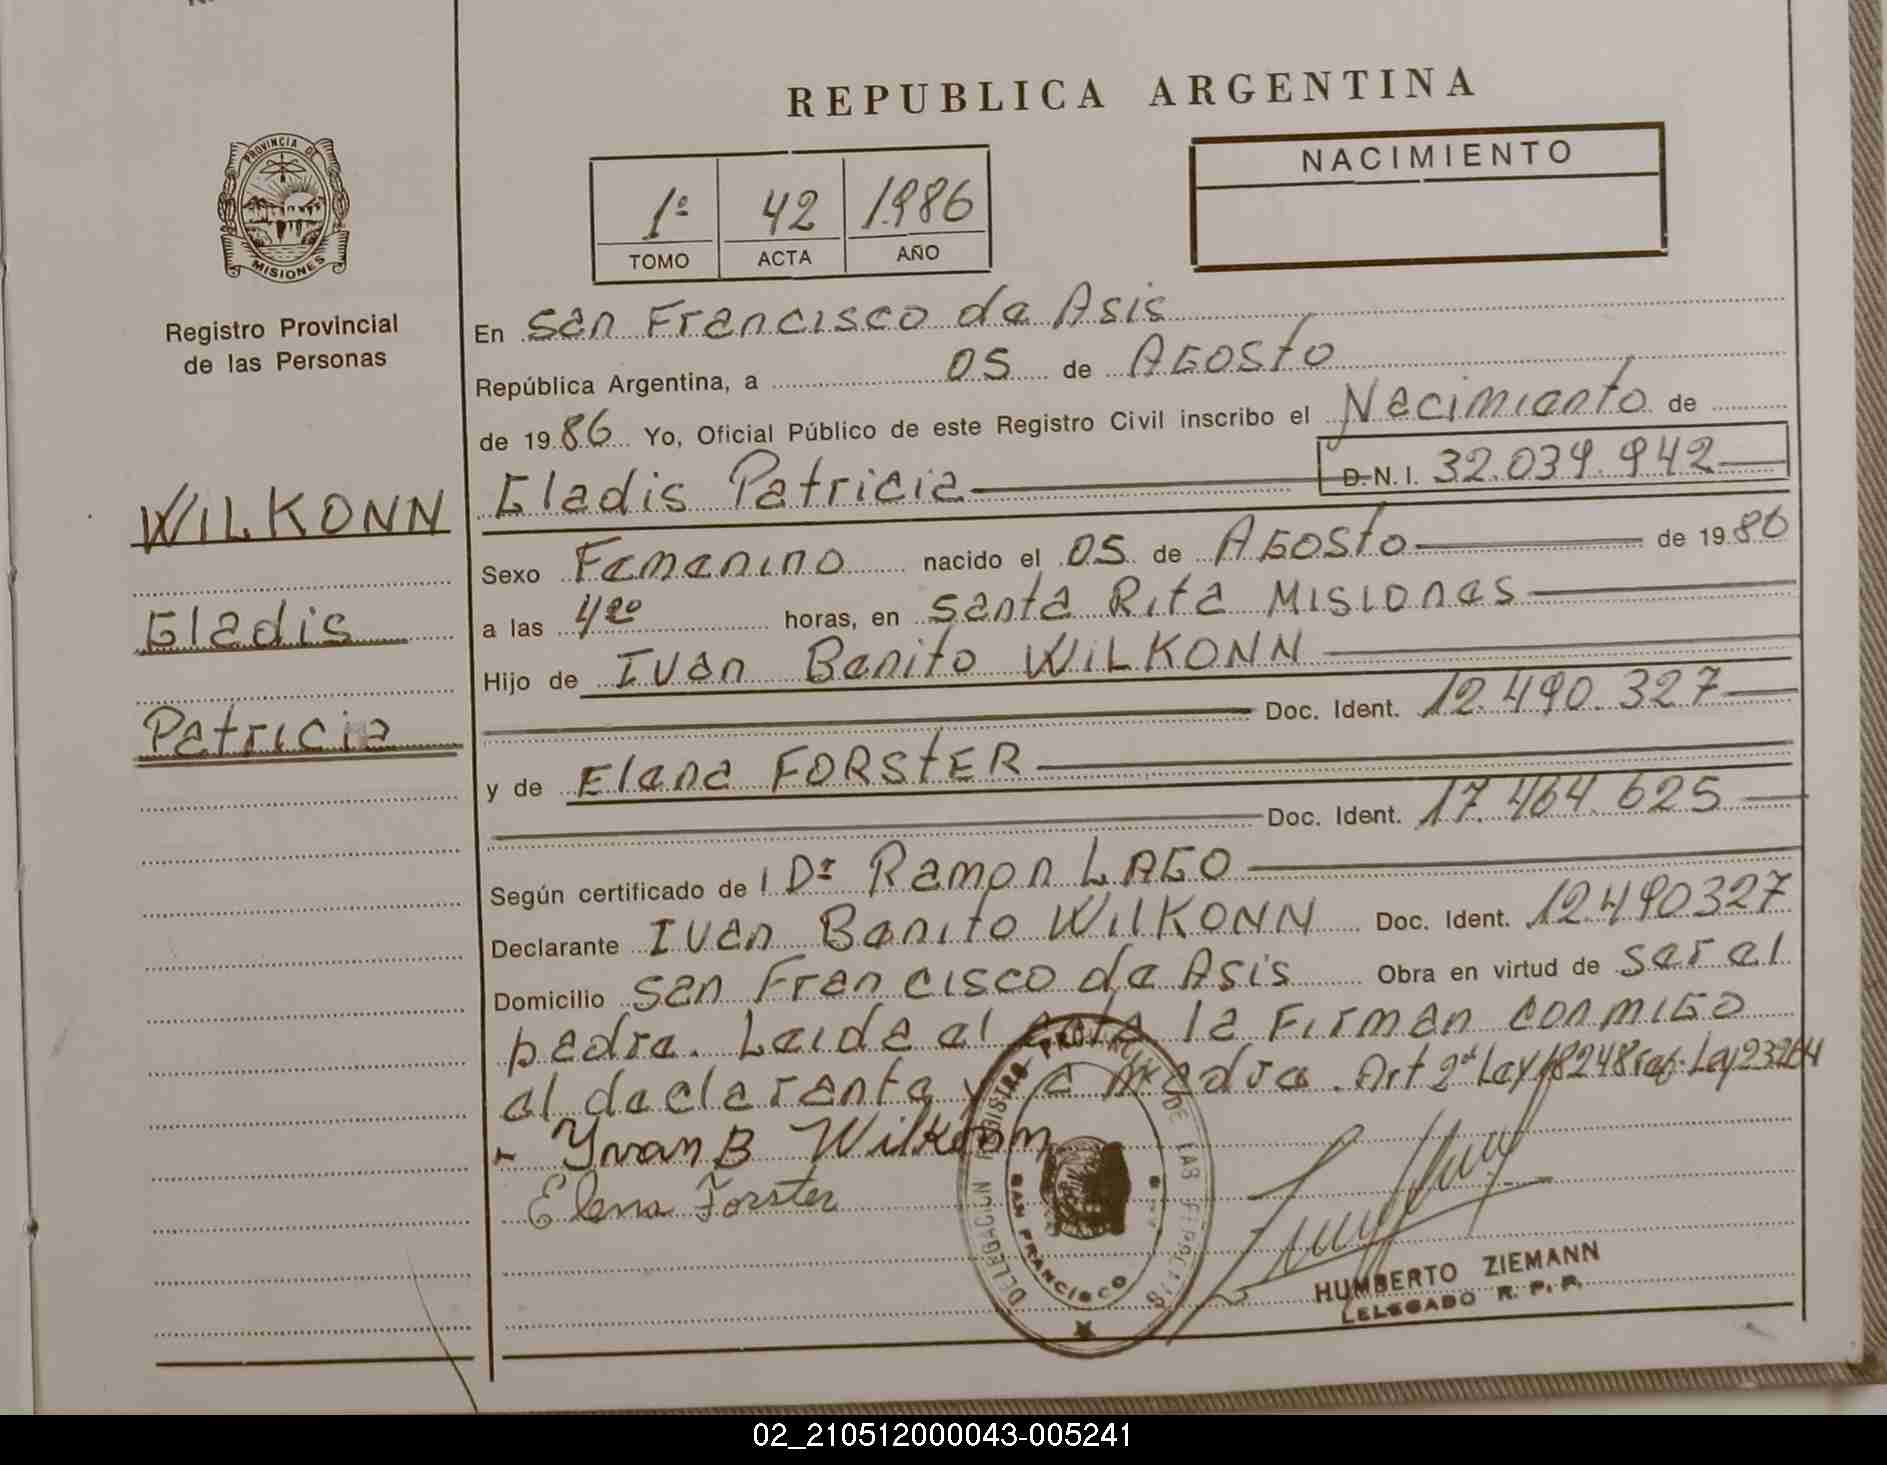 REPUBLICA ARGENTINA
PROVINCIA DE
MISIONES
Registro Provincial
de las Personas
1º 42 1986
TOMO ACTA AÑO
NACIMIENTO
WILKONN
Gladis
Patricia
En San Francisco de Asis
República Argentina, a 05 de AGOSTO
de 1986 Yo, Oficial Público de este Registro Civil inscribo el Nacimiento de
Gladis Patricia D.N.I. 32.039.942
Sexo Femenino nacido el 05 de AGOSTO de 1986
a las 4 horas, en Santa Rita MISIONES
Hijo de IVan Benito WILKONN
Doc. Ident. 12.490.327
y de Elena FORSTER
Doc. Ident. 17.464.625
Según certificado de Dr Ramon LAGO
Declarante IVan Benito WILKONN Doc. Ident. 12.490327
Domicilio San Francisco de Asis Obra en virtud de ser el
padre. Leida el acta la Firman conmiGo
el declarante y la Madre. Art 2º Ley 18248 ref. Ley 23264
Yvan B Wilkonn
Elena Forster
DELEGACION REGISTRO PROVINCIAL DE LAS PERSONAS
SAN FRANCISCO
HUMBERTO ZIEMANN
DELEGADO R. P. P.
02_210512000043-005241